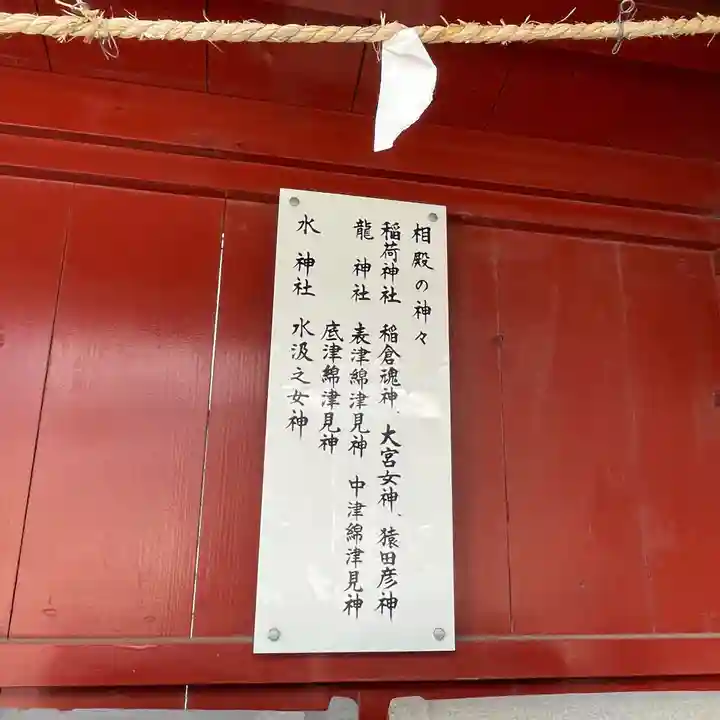 相殿の神々
稲荷神社 稲倉魂神、大宮女神、猿田彦神
龍神社 表津綿津見神 中津綿津見神
底津綿津見神
水神社 水汲之女神